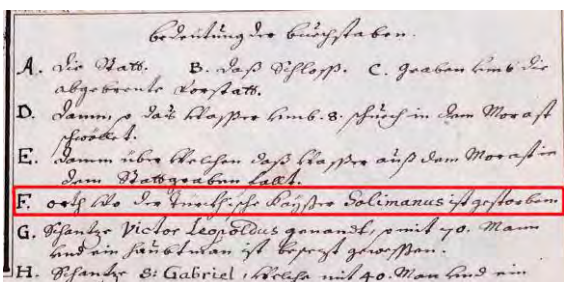 Bedeutung der buechstaben.
A. die Statt. B. daß Schloß. C. graben umb die
abgebrente Vorstatt.
D. Damm, daß Waßer umb. 8. schuech in dem Morast
schwöllet.
E. Damm über Welchen daß Waßer auß dem Morast in
dem Stattgraben fallt.
F. orth Wo der Turchische Kaÿßer Solimanus ist gestorben
G. Schantze Victor Leopoldus genandt, mit 70. Mann
und ein haubtman ist besezt geweßen.
H. Schantze S: Gabriel, Welche mit 40. Man und ein